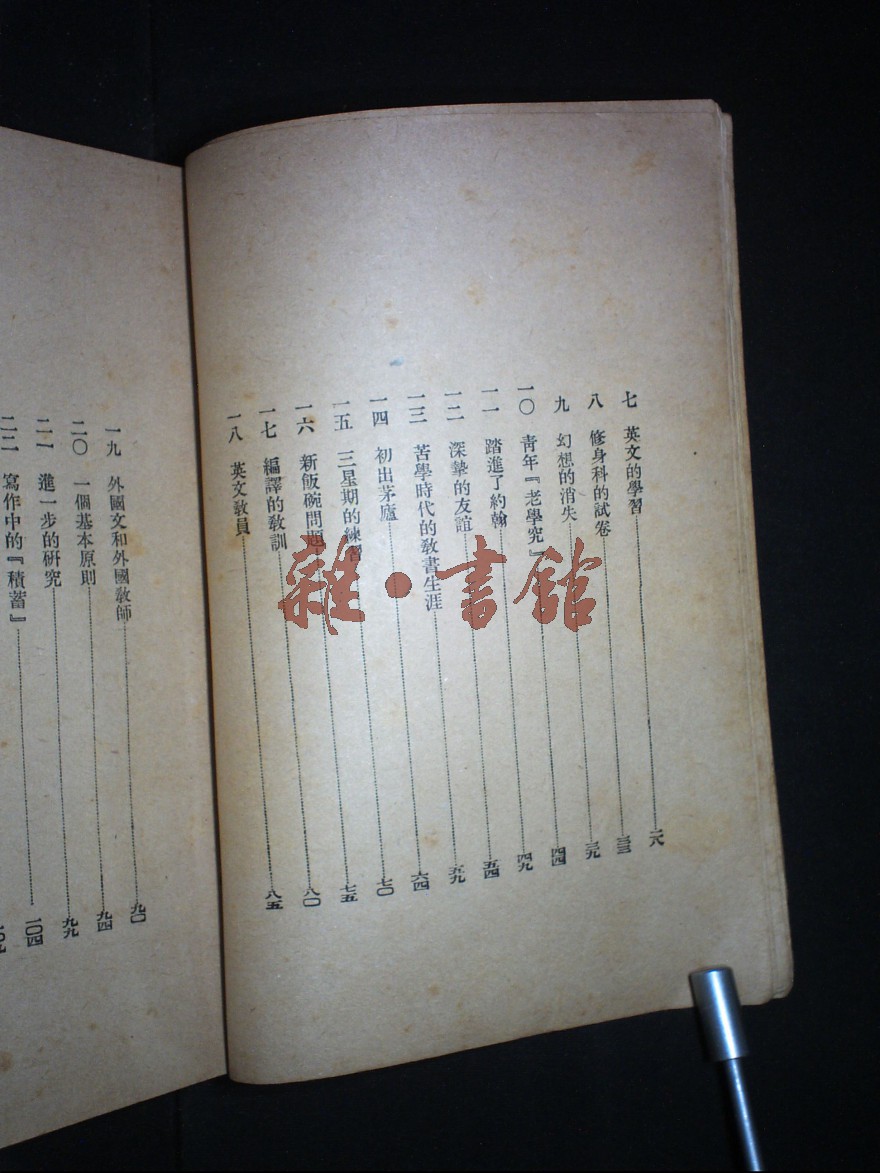 七 英文的學習 二八
八 修身科的試卷 三三
九 幻想的消失 三九
一〇 靑年『老學究』 四九
一一 踏進了約翰 五四
一二 深摯的友誼 五九
一三 苦學時代的敎書生涯 六四
一四 初出茅廬 七〇
一五 三星期的練習 七五
一六 新飯碗問題 八〇
一七 編譯的敎訓
一八 英文敎員 八五
一九 外國文和外國敎師 九〇
二〇 一個基本原則 九四
二一 進一步的硏究 九九
二二 寫作中的『積蓄』 一〇四
一〇九
雜·書館